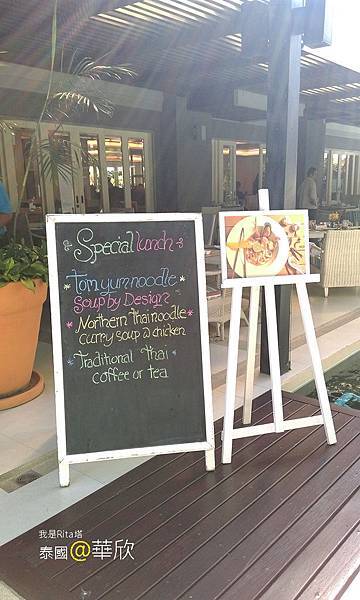 Special lunch
Tom yum noodle
Soup by Design
Northern Thai noodle
curry soup @ chicken
Traditional Thai
coffee or tea
我是Rita塔
泰國@華欣